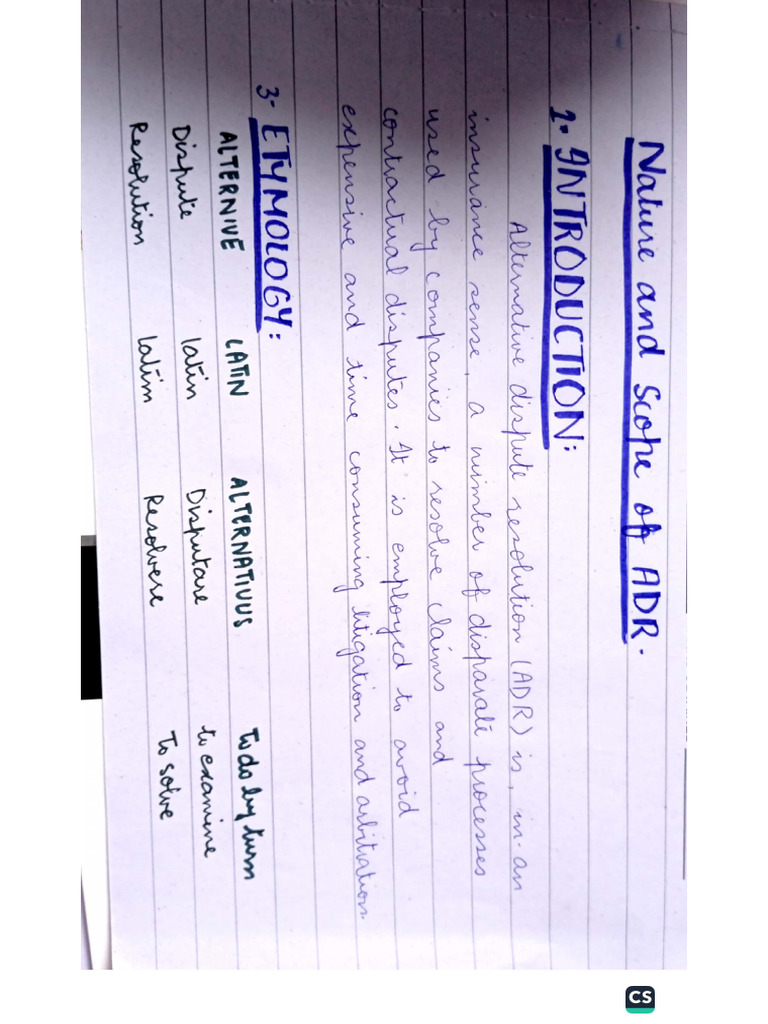 Nature and Scope of ADR.
1. INTRODUCTION:
Alternative dispute resolution (ADR) is, in an
insurance sense, a number of disparate processes
used by companies to resolve claims and
contractual disputes. It is employed to avoid
expensive and time consuming litigation and arbitration.
3. ETYMOLOGY:
ALTERNIVE LATIN ALTERNATIVUS To do by turn
Dispute latin Disputare to examine
Resolution latim Resolvere To solve
CS